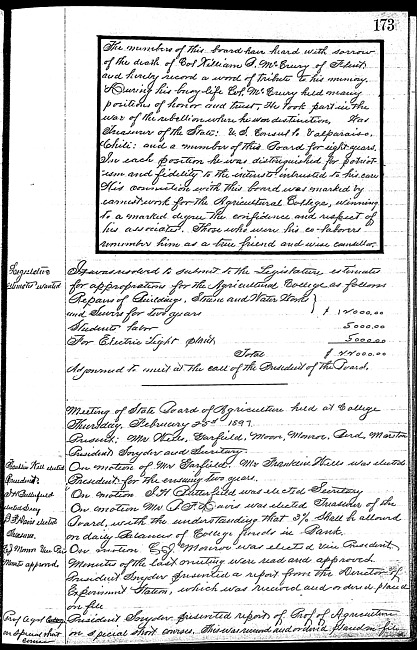 173
The members of this board have heard with sorrow
of the death of Col William B. McCreery of Flint
and hereby record a word of tribute to his memory.
During his busy life Col. McCreery held many
positions of honor and trust. He took part in the
war of the rebellion where he won distinction, was
Treasurer of the State: U.S. Consul to Valparaiso,
Chili: and a member of this Board for eight years.
In each position he was distinguished for patriot-
ism and fidelity to the interests intrusted to his care
His connection with this board was marked by
earnest work for the Agricultural College, winning
to a marked degree the confidence and respect of
his associates. Those who were his co-laborers
remember him as a true friend and wise councellor.
Legislative
estimates wanted
It was resolved to submit to the Legislature estimates
for appropriations for the Agricultural College as follows
Repairs of Buildings, Steam and Water Works
and Sewers for two years $ 000.00
Students labor 5000.00
For Electric Light plant 5000.00
Total $ 000.00
Adjourned to meet at the call of the President of the Board.
Meeting of State Board of Agriculture held at College
Thursday, February 25th 1897.
Present; Mr Wells, Garfield, Moore, Monroe, Bird, Marston
President Snyder and Secretary.
Franklin Wells elected
President
On motion of Mr Garfield, Mr Franklin Wells was elected
President for the ensuing two years.
I H Butterfield
elected Secy
On motion I. H. Butterfield was elected Secretary
B F Davis elected
Treasurer
On motion Mr B. F. Davis was elected Treasurer of the
Board, with the understanding that 3% shall be allowed
on daily Balances of College funds in Bank.
C J Monroe Vice Pres
On motion C. J. Monroe was elected Vice President
Minutes approved
Minutes of the last meeting were read and approved
President Snyder presented a report from the Director of
Experiment Station, which was received and ordered placed
on file
Prof Agri
on special short
courses
President Snyder presented report of Prof of Agriculture
on special short courses. This was received and ordered placed on file